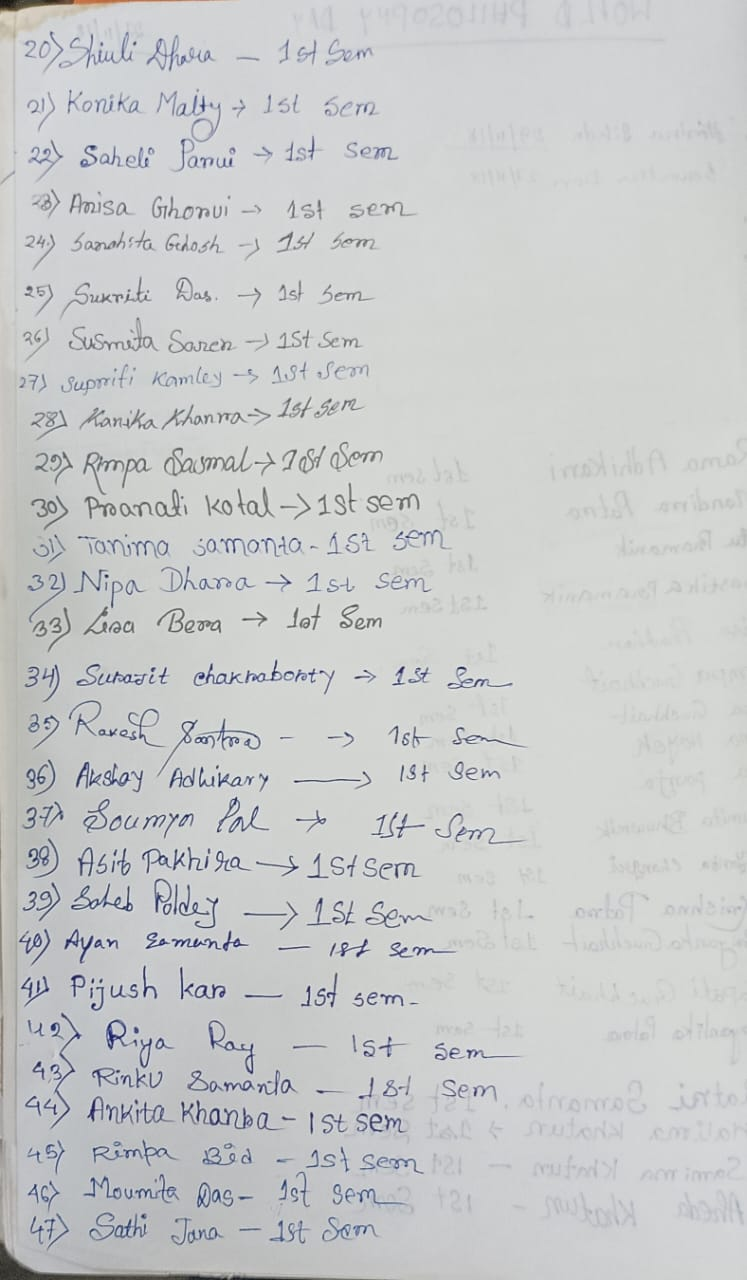 20) Shiuli Dhara — 1st Sem
21) Konika Maity → 1st Sem
22) Saheli Parui → 1st Sem
23) Anisa Ghorui → 1st sem
24) Sanahita Ghosh → 1st Sem
25) Sukriti Das. → 1st Sem
26) Susmita Saren → 1St Sem
27) Supriti Kamley → 1st Sem
28) Kanika Khanra → 1st Sem
29) Rimpa Sasmal → 1st Sem
30) Pranati Kotal → 1st sem
31) Tanima Samanta - 1st sem
32) Nipa Dhara → 1st Sem
33) Lisa Bera → 1st Sem
34) Surajit chakraborty → 1st Sem
35) Santra - → 1st Sem
36) Akshay Adhikary → 1st Sem
37) Soumya Pal → 1st Sem
38) Asit Pakhira → 1St sem
39) Saheb → 1St Sem
40) Ayan Samanta — 1st sem
41) Pijush kar — 1st sem.
42) Riya Ray — 1st sem
43) Rinku Samanta — 1st Sem
44) Ankita Khanra - 1st sem
45) Rimpa Bid - 1st sem
46) Moumita Das - 1st Sem
47) Sathi Jana — 1st Sem